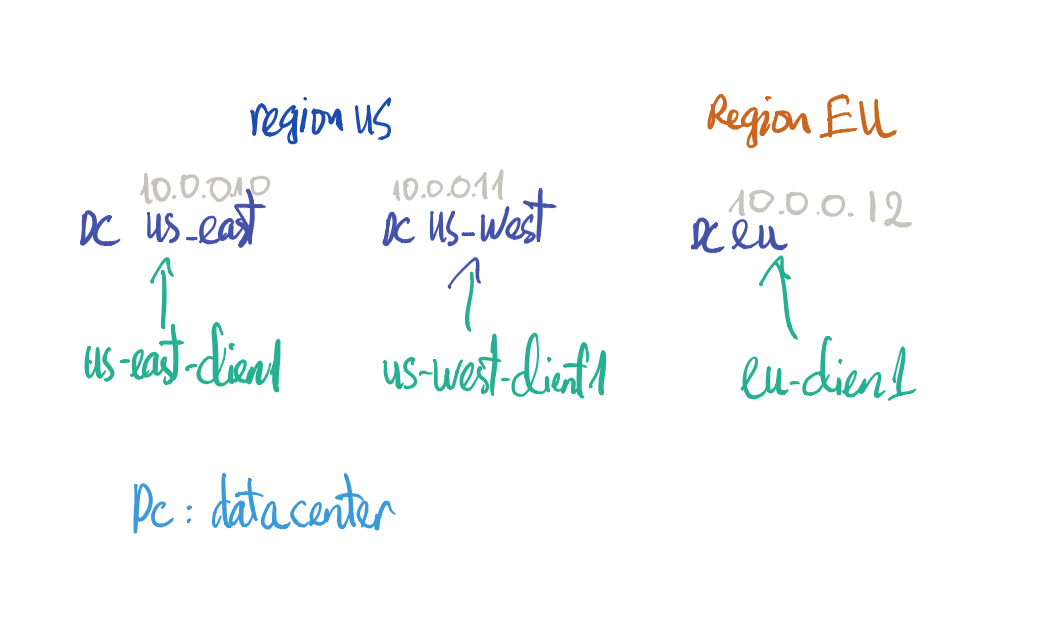 region us
Region EU
10.0.0.10
10.0.0.11
10.0.0.12
DC us_east
DC us-west
DC eu
us-east-clien1
us-west-client1
eu-clien1
DC : datacenter